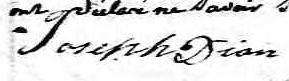 ont déclaré ne savoir s
Joseph Dian